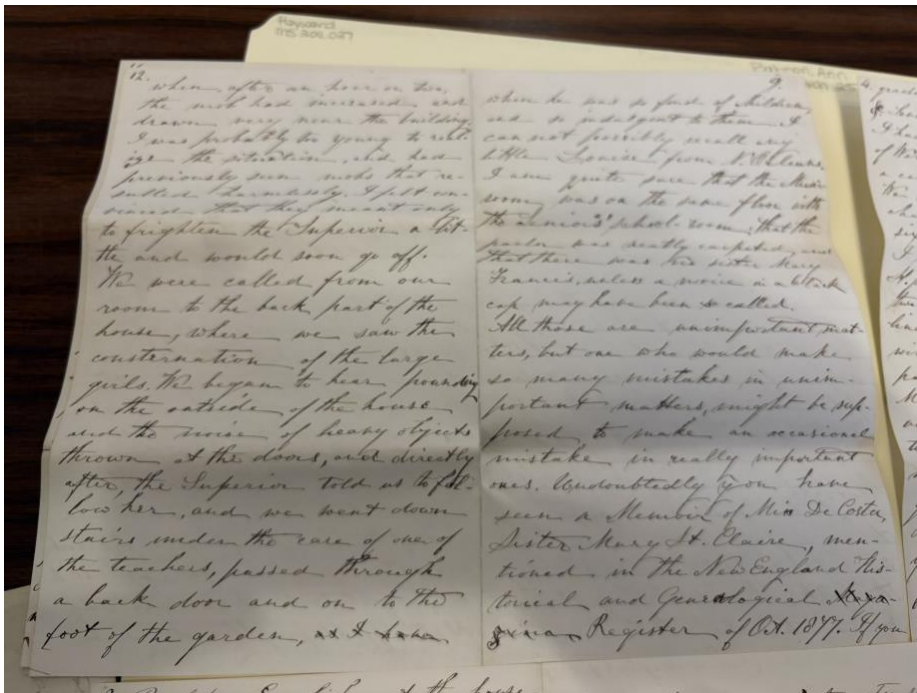 Hayward
MS.2011.037
12.
when after an hour or two,
the mob had increased and
drawn very near the building.
I was probably too young to real-
ize the situation, and had
previously seen mobs that re-
sulted harmlessly. I felt con-
vinced that they meant only
to frighten the Superior a lit-
tle and would soon go off.
We were called from our
room to the back part of the
house, where we saw the
consternation of the large
girls. We began to hear pounding
on the outside of the house
and the noise of heavy objects
thrown at the doors, and directly
after, the Superior told us to fol-
low her, and we went down
stairs under the care of one of
the teachers, passed through
a back door and on to the
foot of the garden, as I have
9.
when he was so fond of children
and so indulgent to them. I
can not possibly recall any
little Louise from N. Orleans.
I am quite sure that the Music
room was on the same floor with
the junior's school-room; that the
parlor was neatly carpeted, and
that there was no sister Mary
Francis, unless a novice in a black
cap, may have been so called.
All these are unimportant mat-
ters, but one who would make
so many mistakes in unim-
portant matters, might be sup-
posed, to make an occasional
mistake in really important
ones. Undoubtedly you have
seen a Memoir of Miss De Costa,
Sister Mary St. Claire, men-
tioned in the New England His-
torical and Genealogical Maga-
zine Register of Oct. 1877. If you